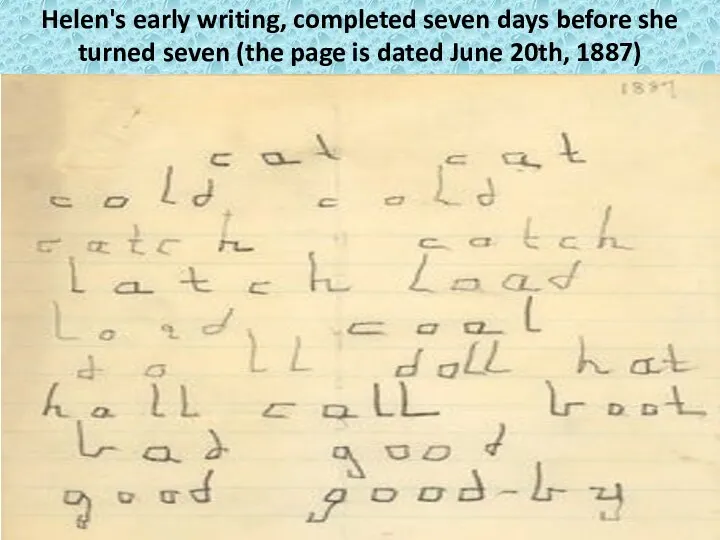 Helen's early writing, completed seven days before she
turned seven (the page is dated June 20th, 1887)
1887
cat cat
cold cold
catch catch
latch load
load coal
doll doll hat
hall call boot
bad good
good good-by